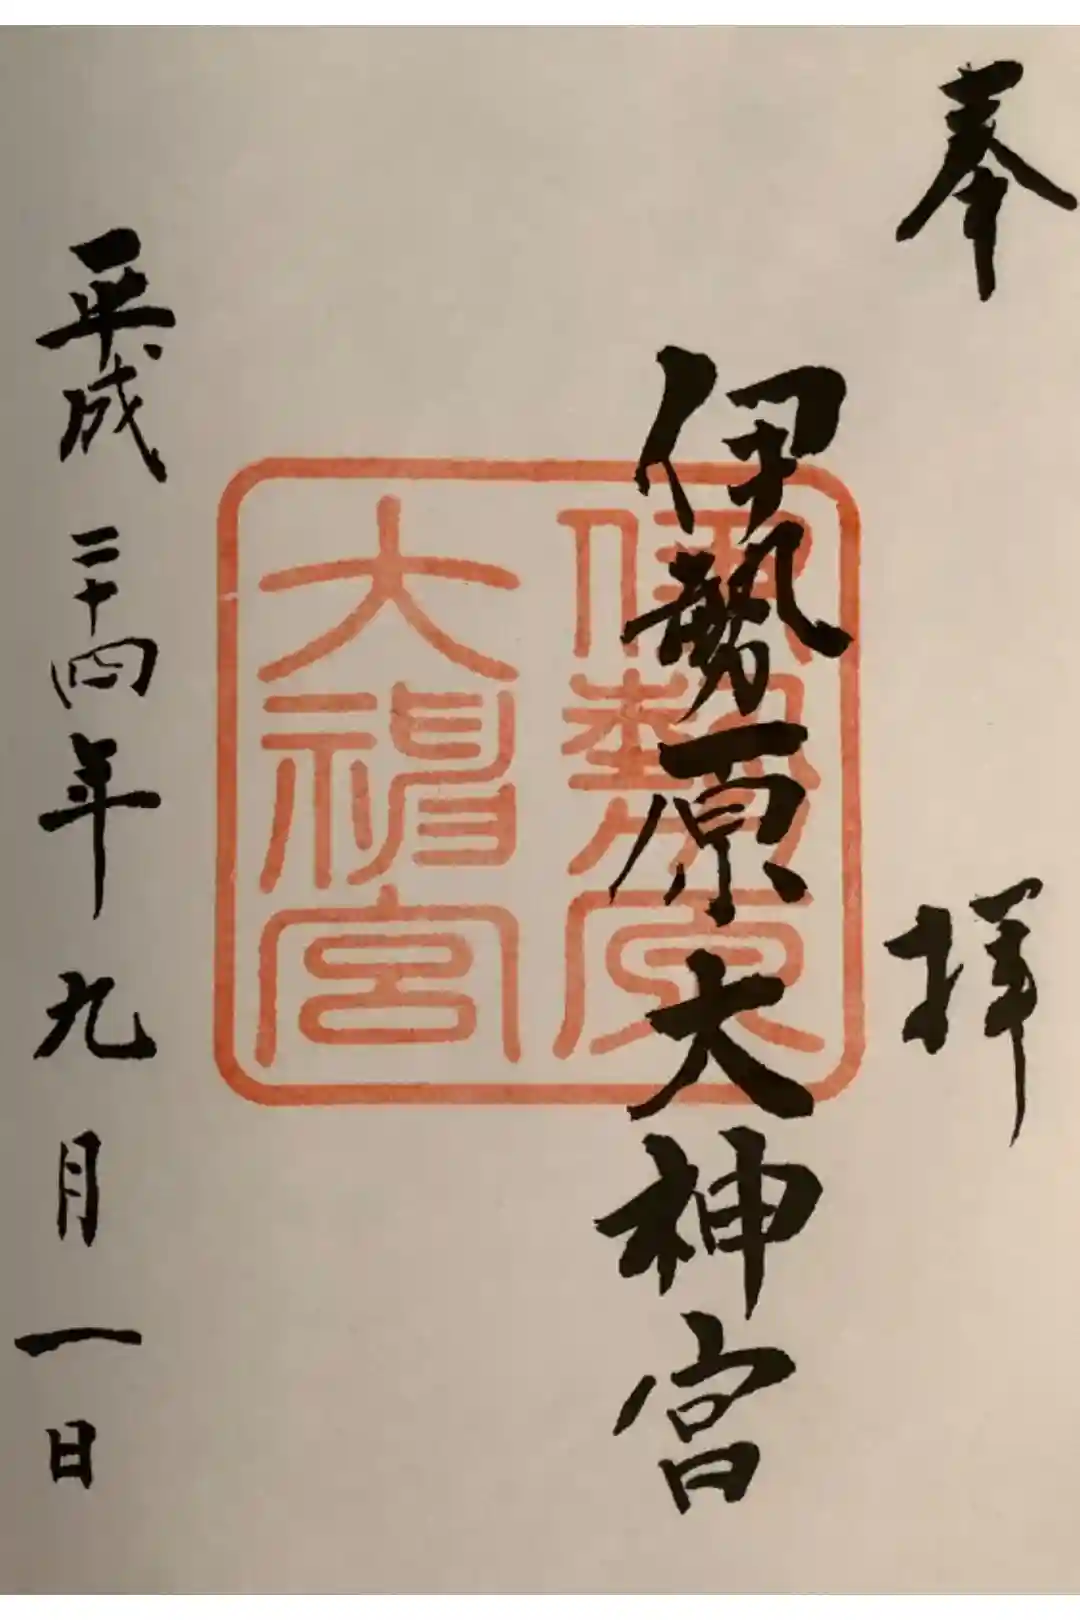 奉拝
伊勢原大神宮
伊勢原
大神宮
平成二十四年九月一日